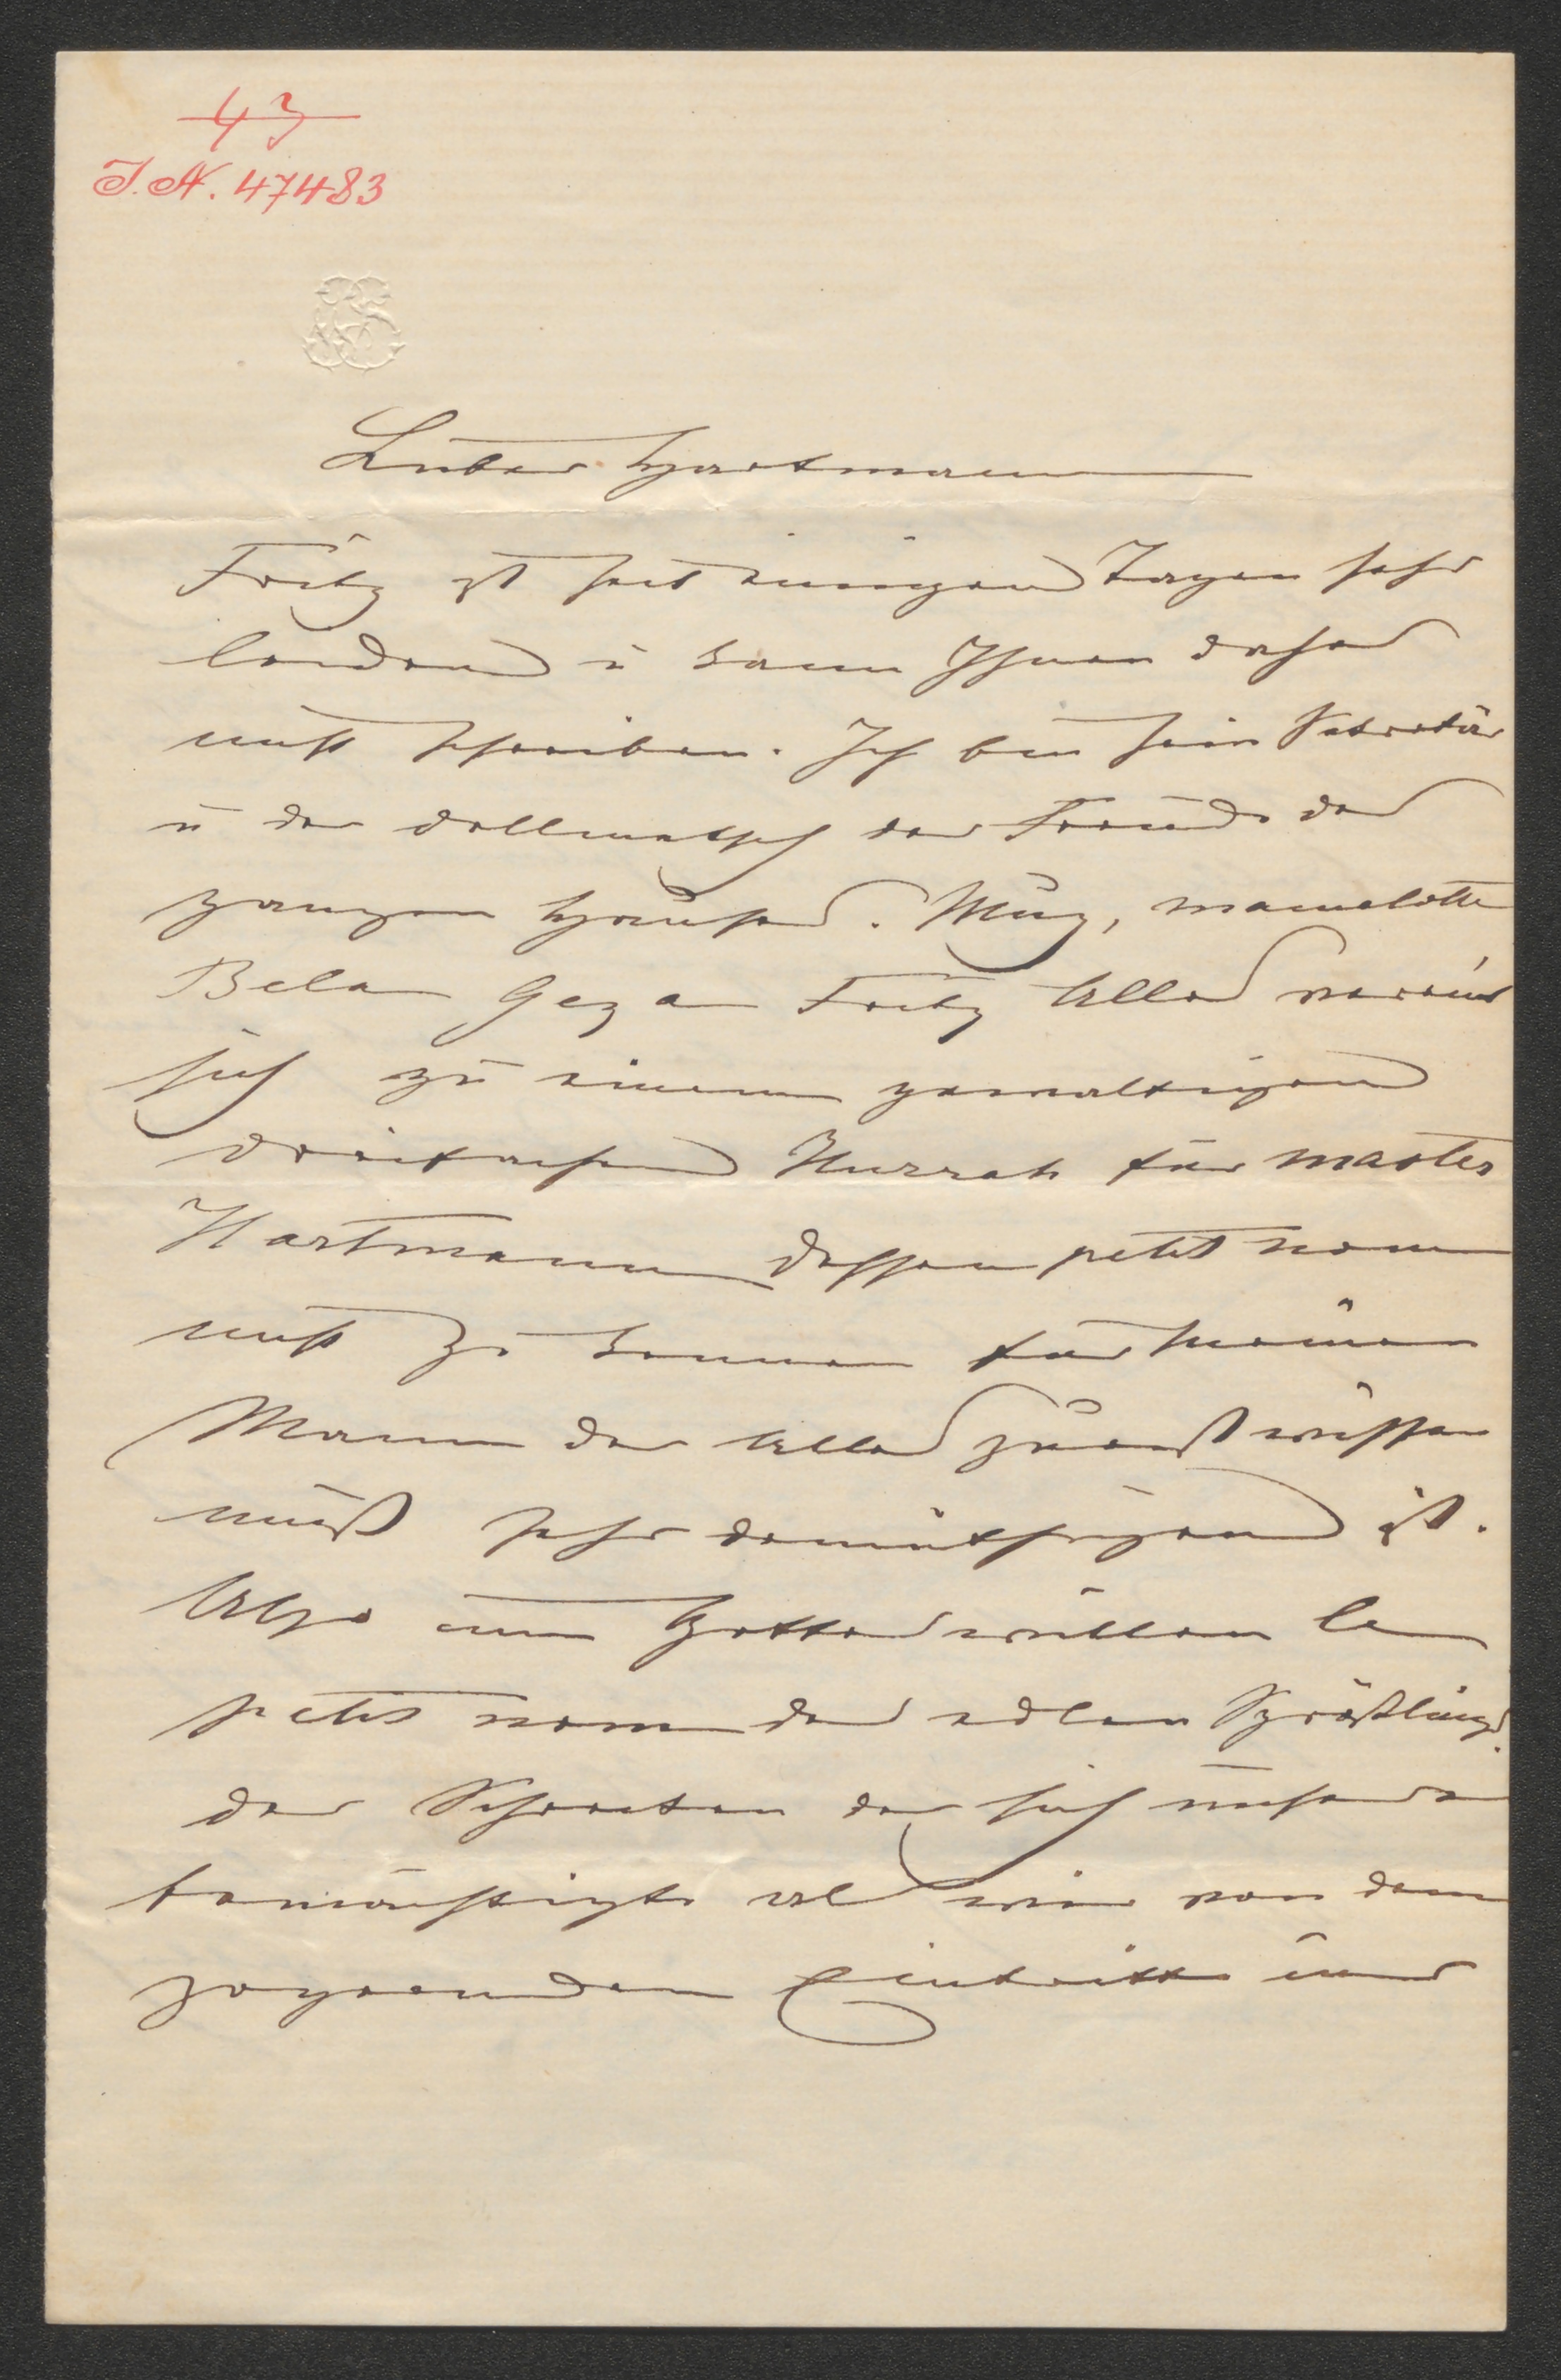 43
J. N. 47483
Lieber Hartmann
Fritz ist seit einigen Tagen sehr
leidend u kann Ihnen daher
nicht schreiben. Ich bin sein Sekretär
u der dollmetsch der Freude des
ganzen Hauses. Muz, mamelotte
Bela Geza Fritz Alles vereint
sich zu einem gewaltigen
dreifachen Hurrah für master
Hartmann dessen petit nom
nicht zu kennen für meinen
Mann der Alles zuerst wissen
muß sehr demüthigend ist.
Also um Gotteswillen le
petit nom des edlen Sprößlings.
der Schrecken der sich unserer
bemächtigte als wir von dem
Eintritt